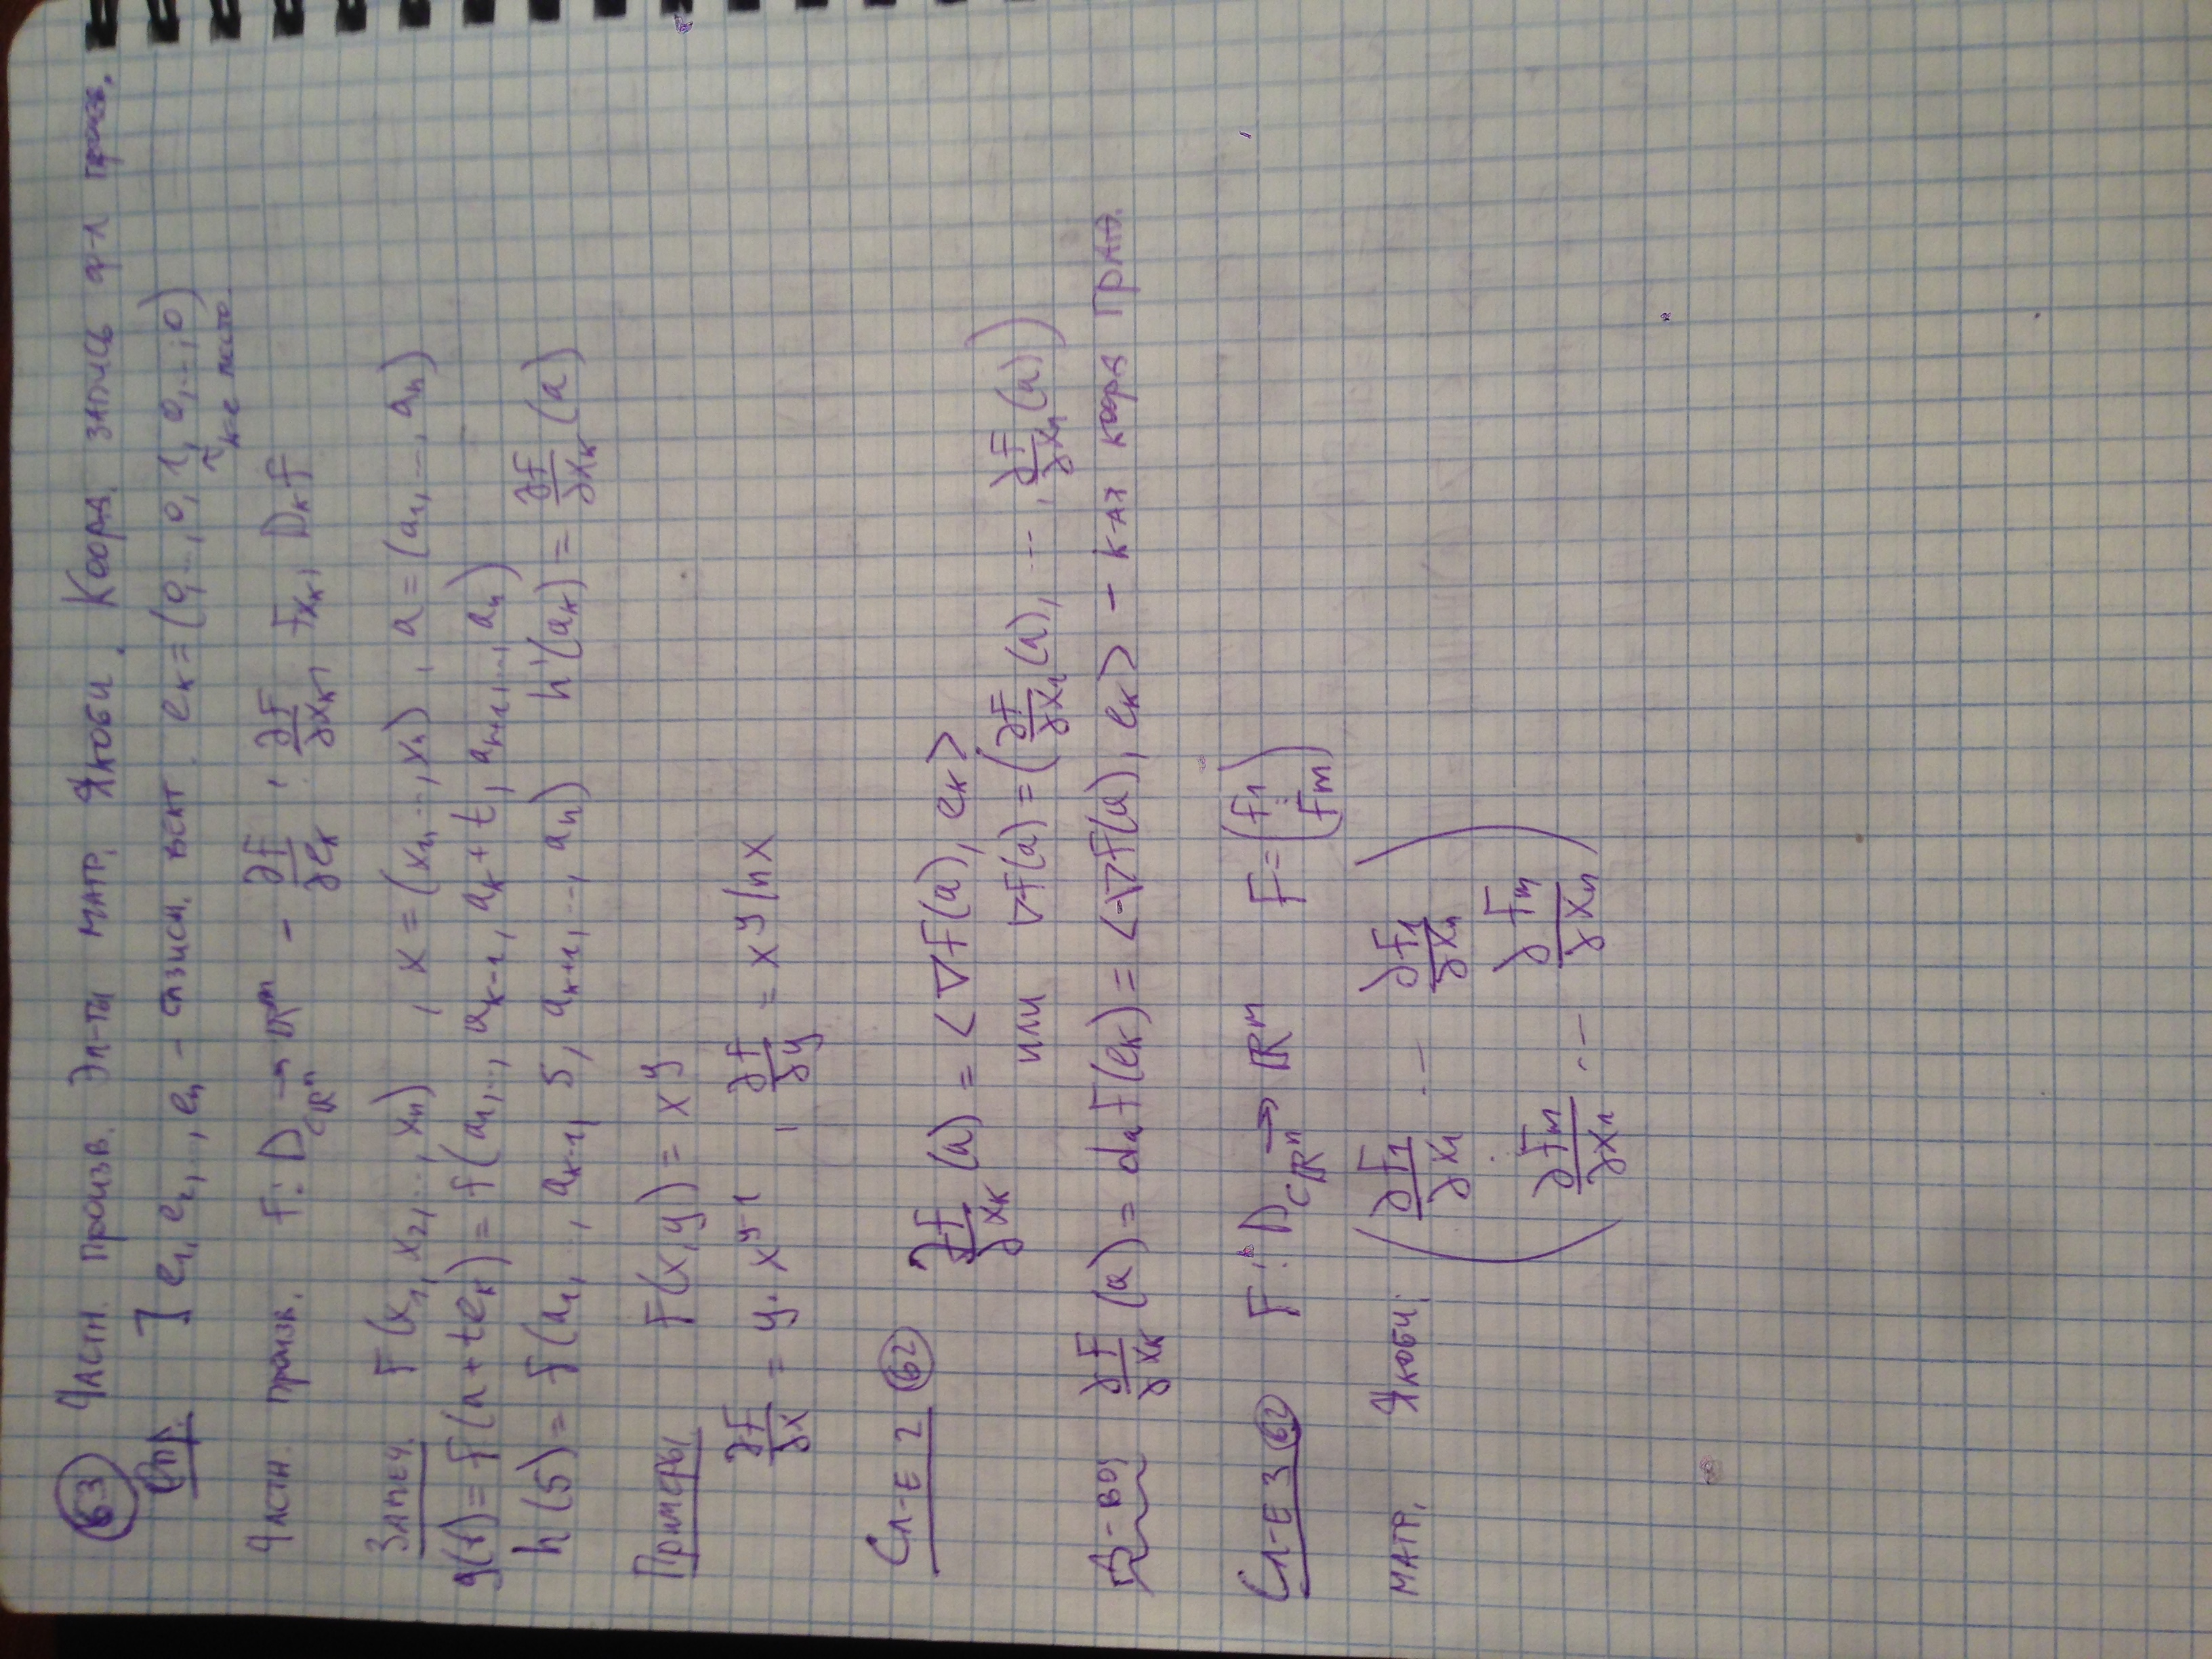 63 Частн. произв. Эл-ты матр. Якоби. Коорд. запись ф-л
Опр. ] e₁, e₂, .., eₙ – базисн. вект. eₖ = (0, .., 0, 1, 0, ..., 0)
к-е место.
Частн. произв. f: D ⊂ ℝⁿ → ℝᵐ – ∂f/∂eₖ : ∂f/∂xₖ, fₓₖ, Dₖ f
Замеч. f(x₁, x₂, ..., xₙ) , x = (x₁, .., xₙ) , a = (a₁, ..., aₙ)
g(t) = f(a + teₖ) = f(a₁, .., aₖ₋₁, aₖ + t, aₖ₊₁, ..., aₙ)
h(s) = f(a₁, .., aₖ₋₁, s, aₖ₊₁, ..., aₙ) h'(aₖ) = ∂f/∂xₖ (a)
Примеры f(x, y) = x^y
∂f/∂x = y · x^(y-1) , ∂f/∂y = x^y ln x
Сл-е 2 62
∂f/∂xₖ (a) = < ∇f(a), eₖ >
или ∇f(a) = (∂f/∂x₁ (a), ... , ∂f/∂xₙ (a))
Д-во, ∂f/∂xₖ (a) = dₐ f(eₖ) = < ∇f(a), eₖ > – к-ая коорд град.
Сл-е 3 62 F : D ⊂ ℝⁿ → ℝᵐ F = (f₁ ⋮ fₘ)
матр. Якоби: ( ∂f₁/∂x₁ ... ∂f₁/∂xₙ
⋮
∂fₘ/∂x₁ ... ∂fₘ/∂xₙ )